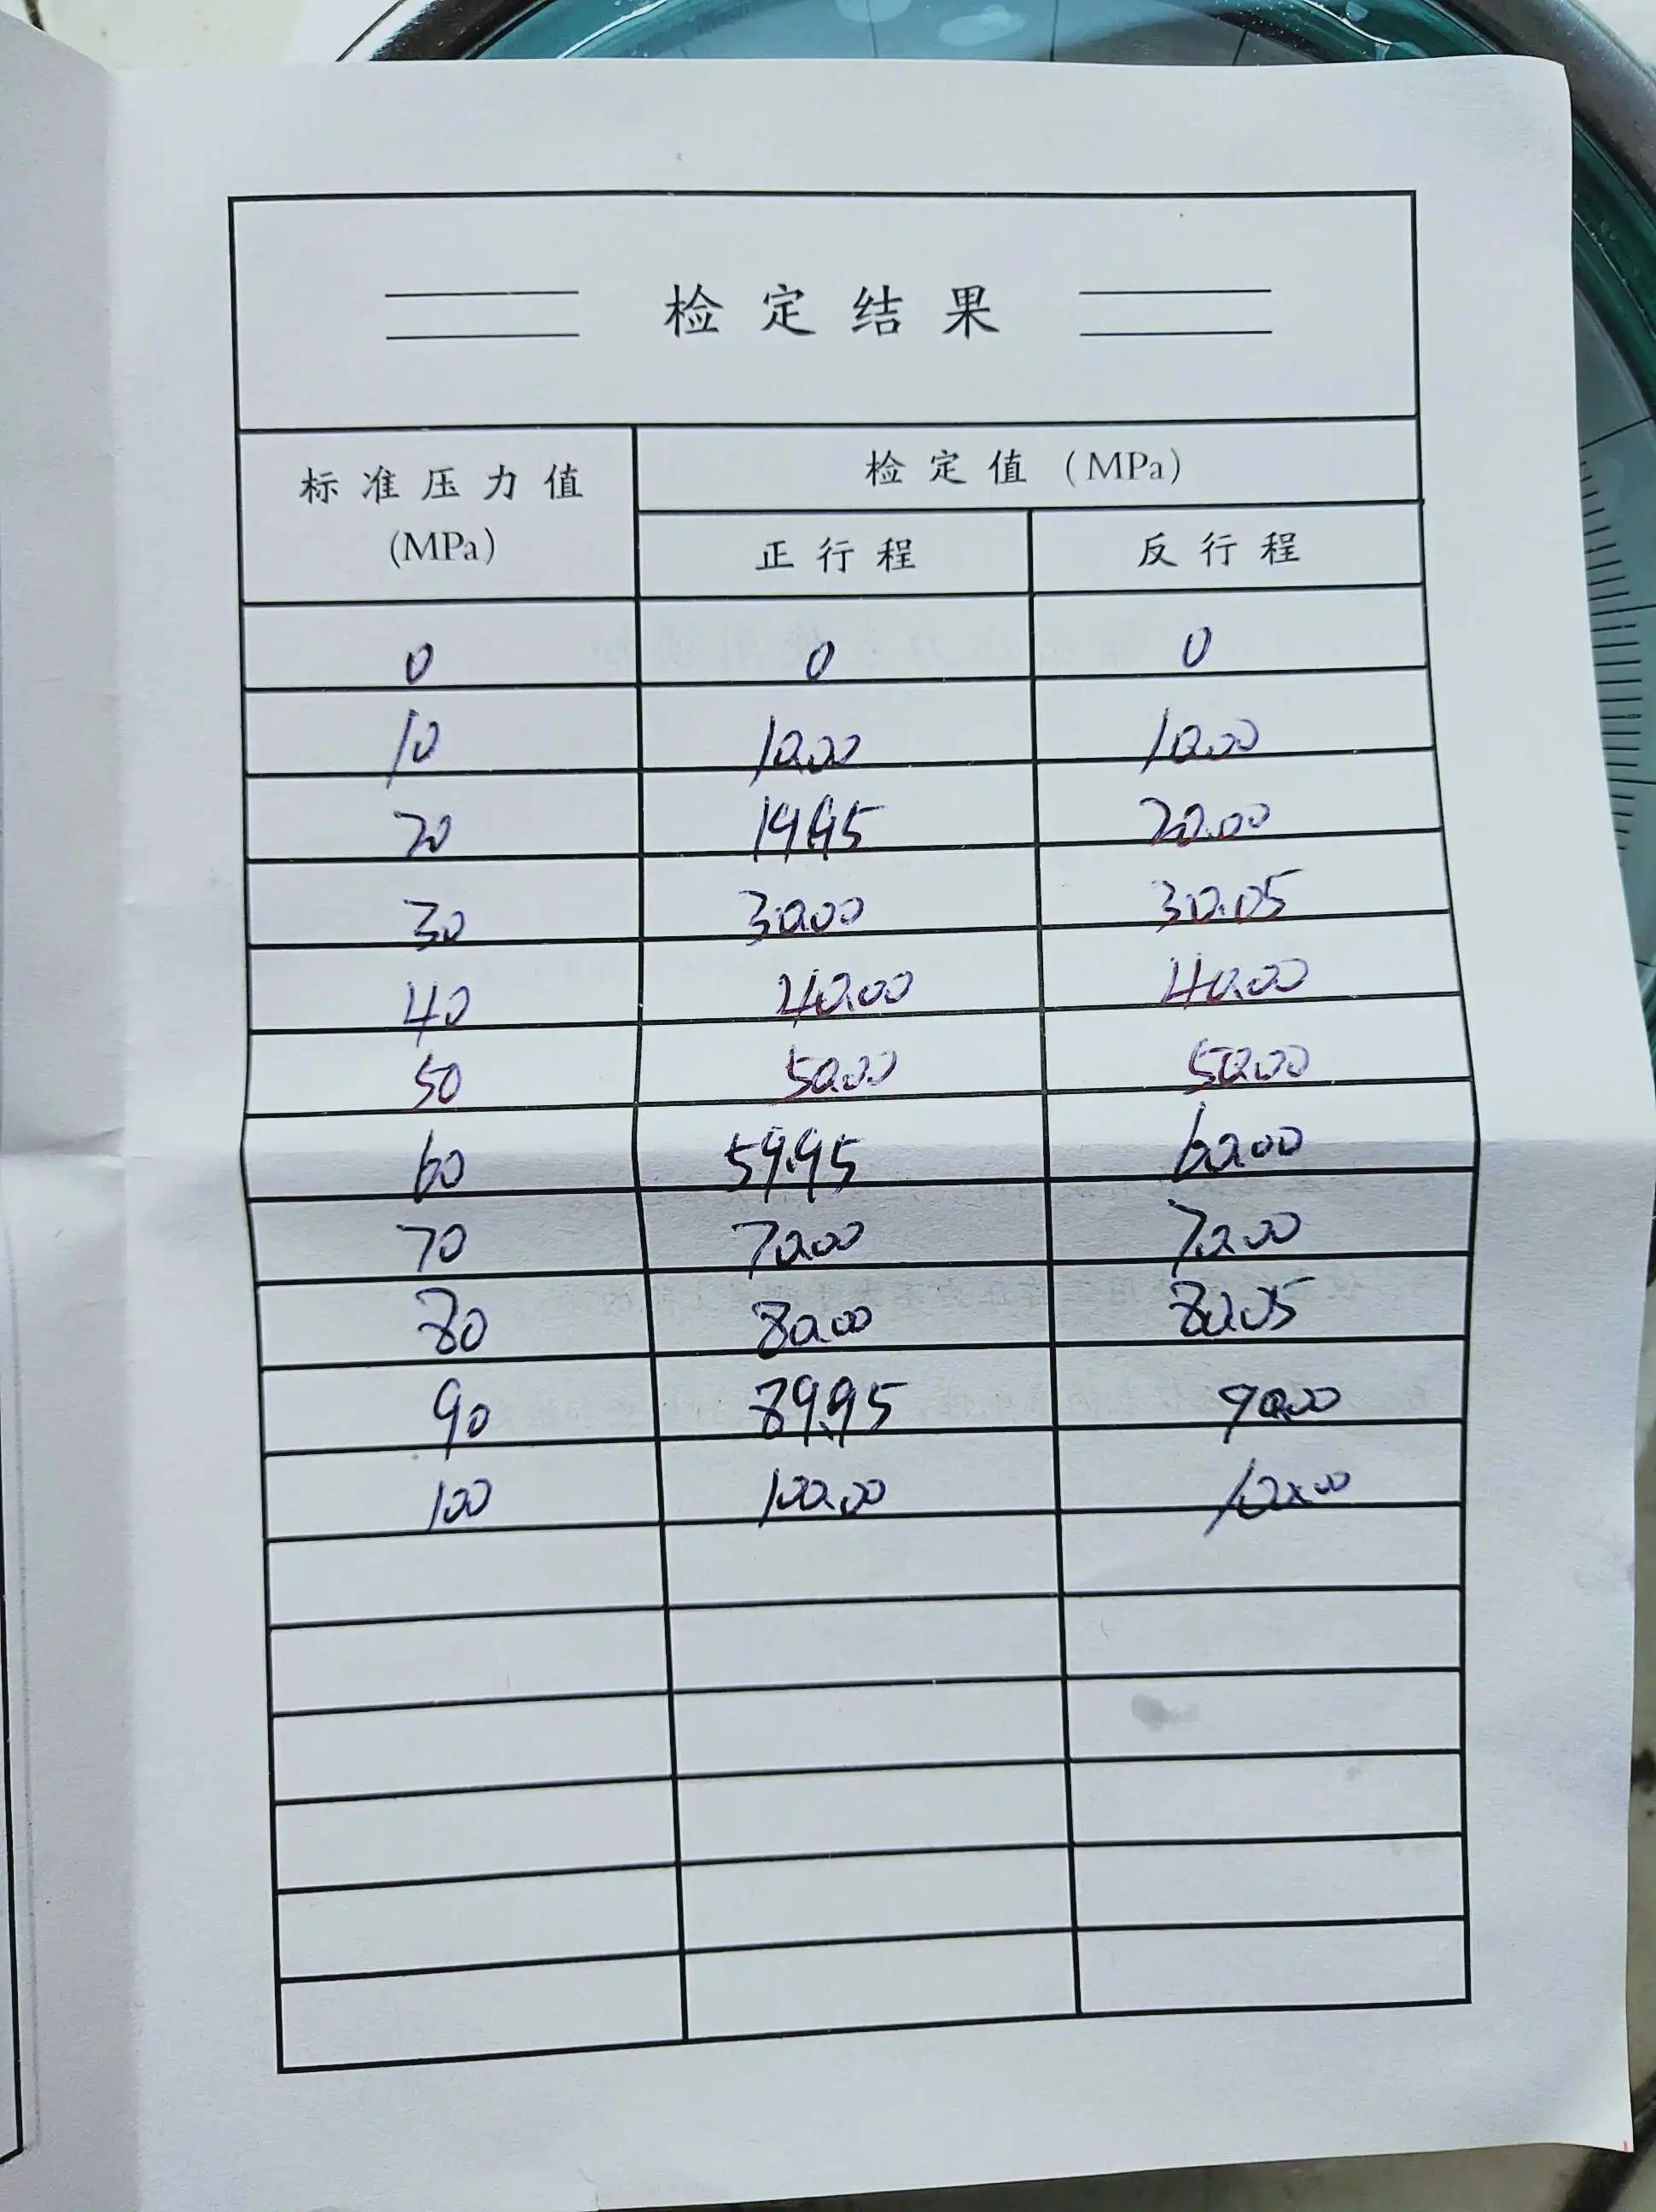 检定结果
标准压力值 (MPa) 检定值 (MPa)
正行程 反行程
0 0 0
10 10.00 10.00
20 19.95 20.00
30 30.00 30.05
40 40.00 40.00
50 50.00 50.00
60 59.95 60.00
70 70.00 70.00
80 80.00 80.05
90 89.95 90.00
100 100.00 100.00